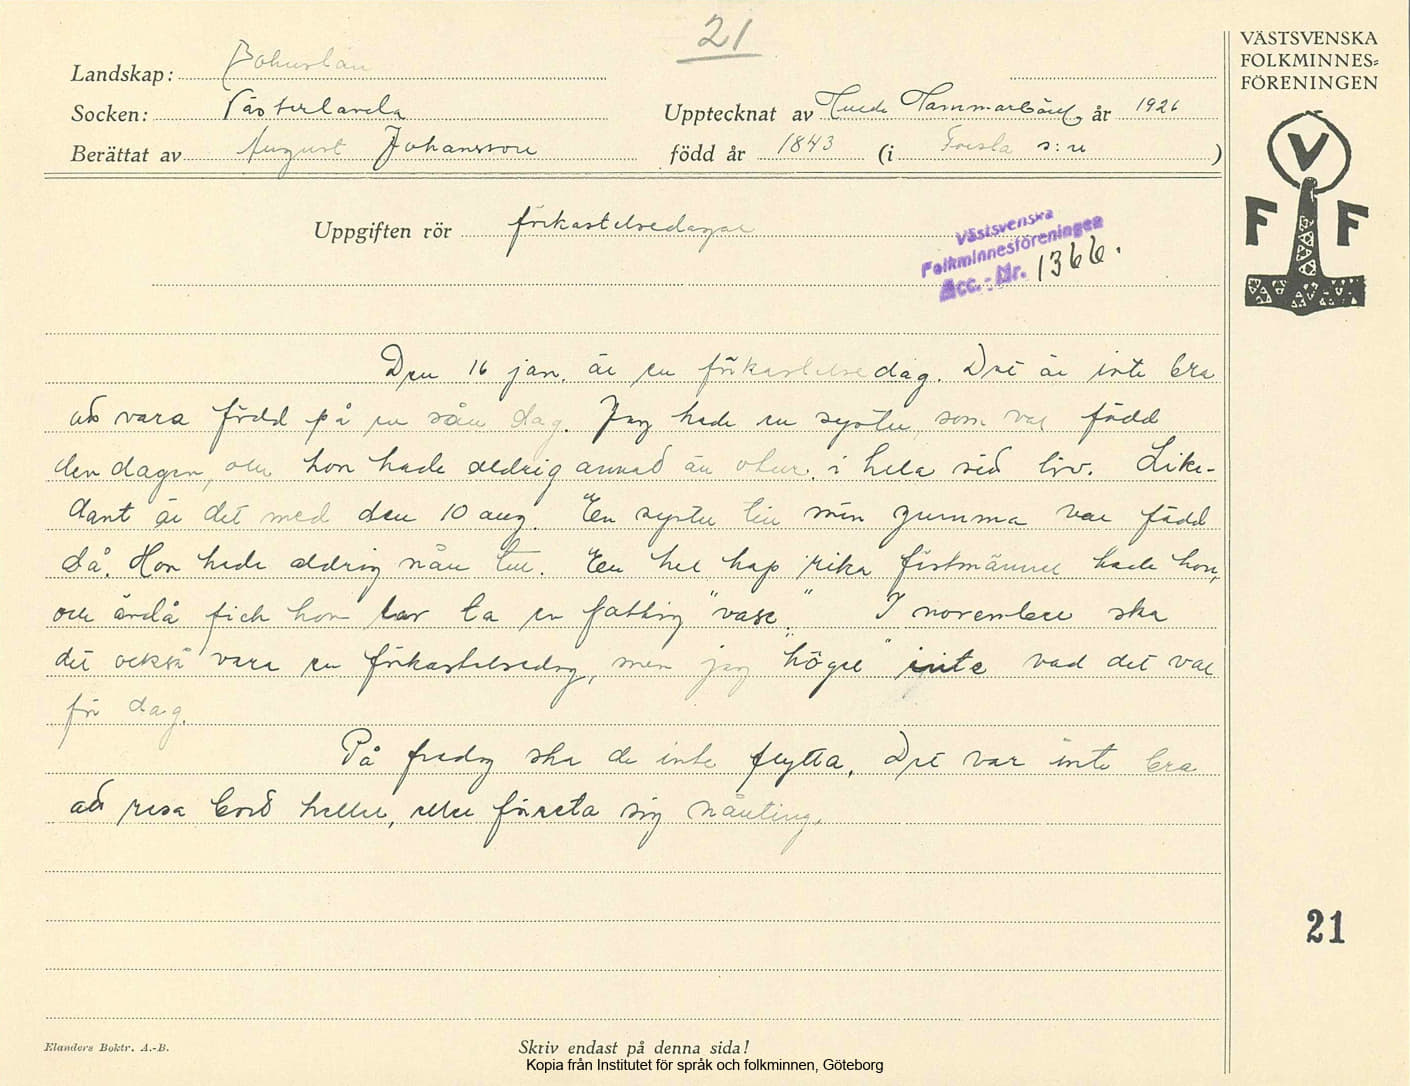 21
VÄSTSVENSKA
FOLKMINNES=
FÖRENINGEN
V
F F
Landskap: Bohuslän
Socken: Västerlanda Upptecknat av Tuede Hammarbäck år 1926
Berättat av August Johansson född år 1843 (i Foesla s:n)
Uppgiften rör förkastelsedagar
Västsvenska
Folkminnesföreningen
Acc.-Nr. 1366.
Den 16 jan. är en förkastelsedag. Det är inte bra
att vara född på en sån dag. Jag hade en syster, som var född
den dagen, och hon hade aldrig annat än otur i hela sitt liv. Like-
dant är det med den 10 aug. En syster till min gumma var född
då. Hon hade aldrig nån tur. En hel hop rika fästmänner hade hon,
och ändå fick hon ta en fattig "vase". I november ska
det också vara en förkastelsedag, men jag "högre" inte vad det var
för dag.
På fredag ska de inte flytta. Det var inte bra
att resa bort heller, eller företa sig nånting.
21
Elanders Boktr. A.-B.
Skriv endast på denna sida!
Kopia från Institutet för språk och folkminnen, Göteborg